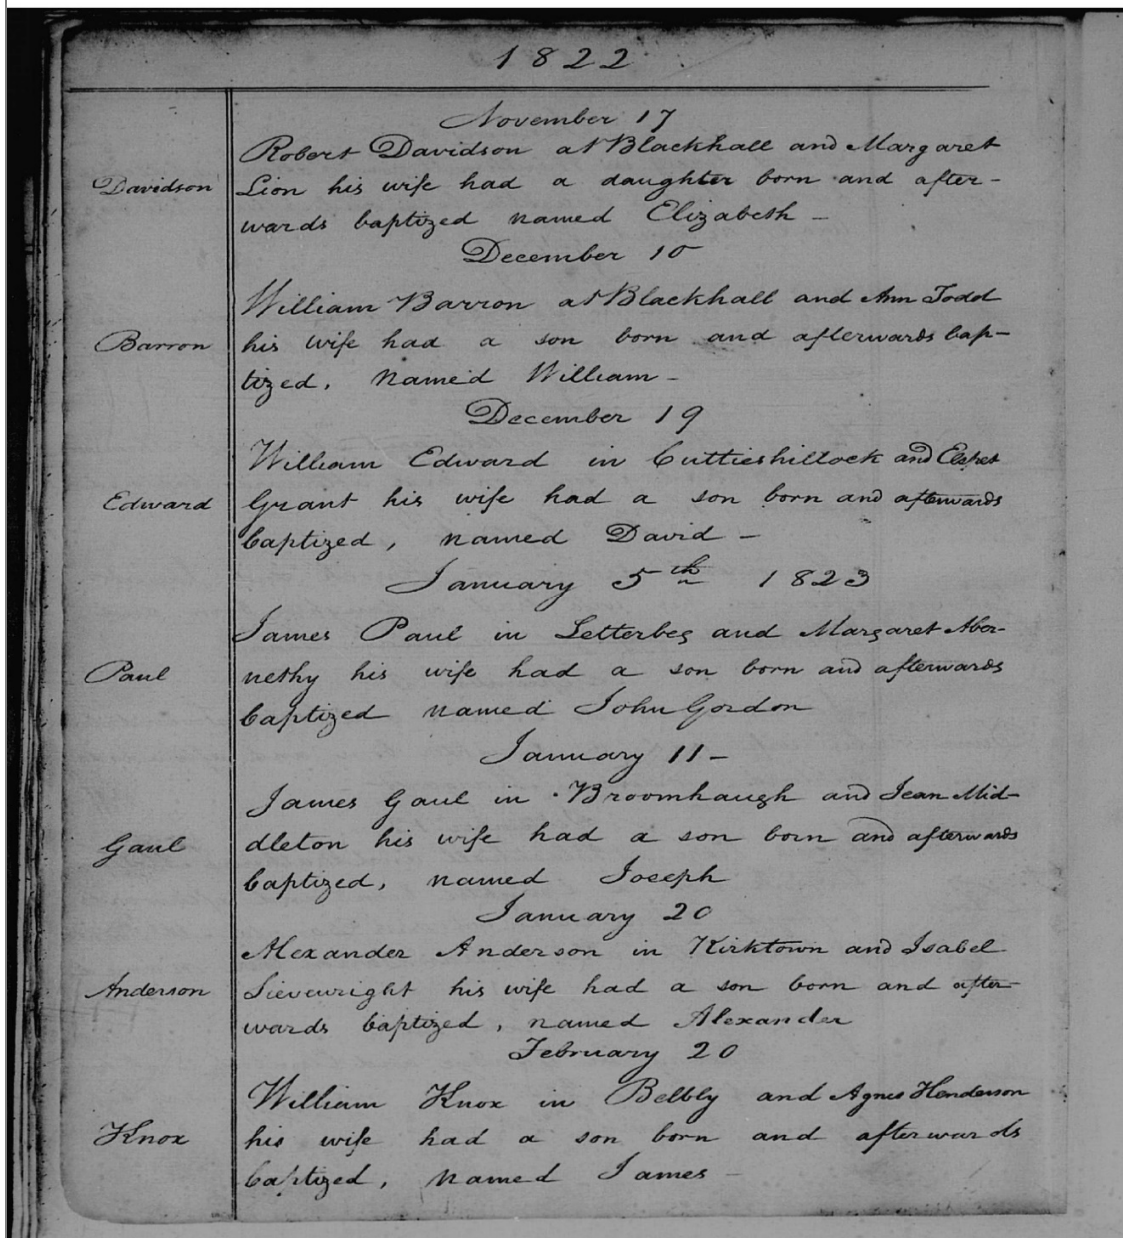 1822
November 17
Robert Davidson at Blackhall and Margaret
Davidson
Lion his wife had a daughter born and after-
wards baptized named Elizabeth -
December 10
William Barron at Blackhall and Ann Todd
Barron
his wife had a son born and afterwards bap-
tized, Named William -
December 19
William Edward in Cuttieshillock and Elspet
Edward
Grant his wife had a son born and afterwards
baptized, named David -
January 5th 1823
James Paul in Letterbeg and Margaret Aber-
Paul
nethy his wife had a son born and afterwards
baptized named John Gordon
January 11 -
James Gaul in Broomhaugh and Jean Mid-
Gaul
dleton his wife had a son born and afterwards
baptized, named Joseph
January 20
Alexander Anderson in Kirktown and Isabel
Anderson
Sievewright his wife had a son born and after-
wards baptized, named Alexander
February 20
William Knox in Belbly and Agnes Henderson
Knox
his wife had a son born and afterwards
baptized, named James -